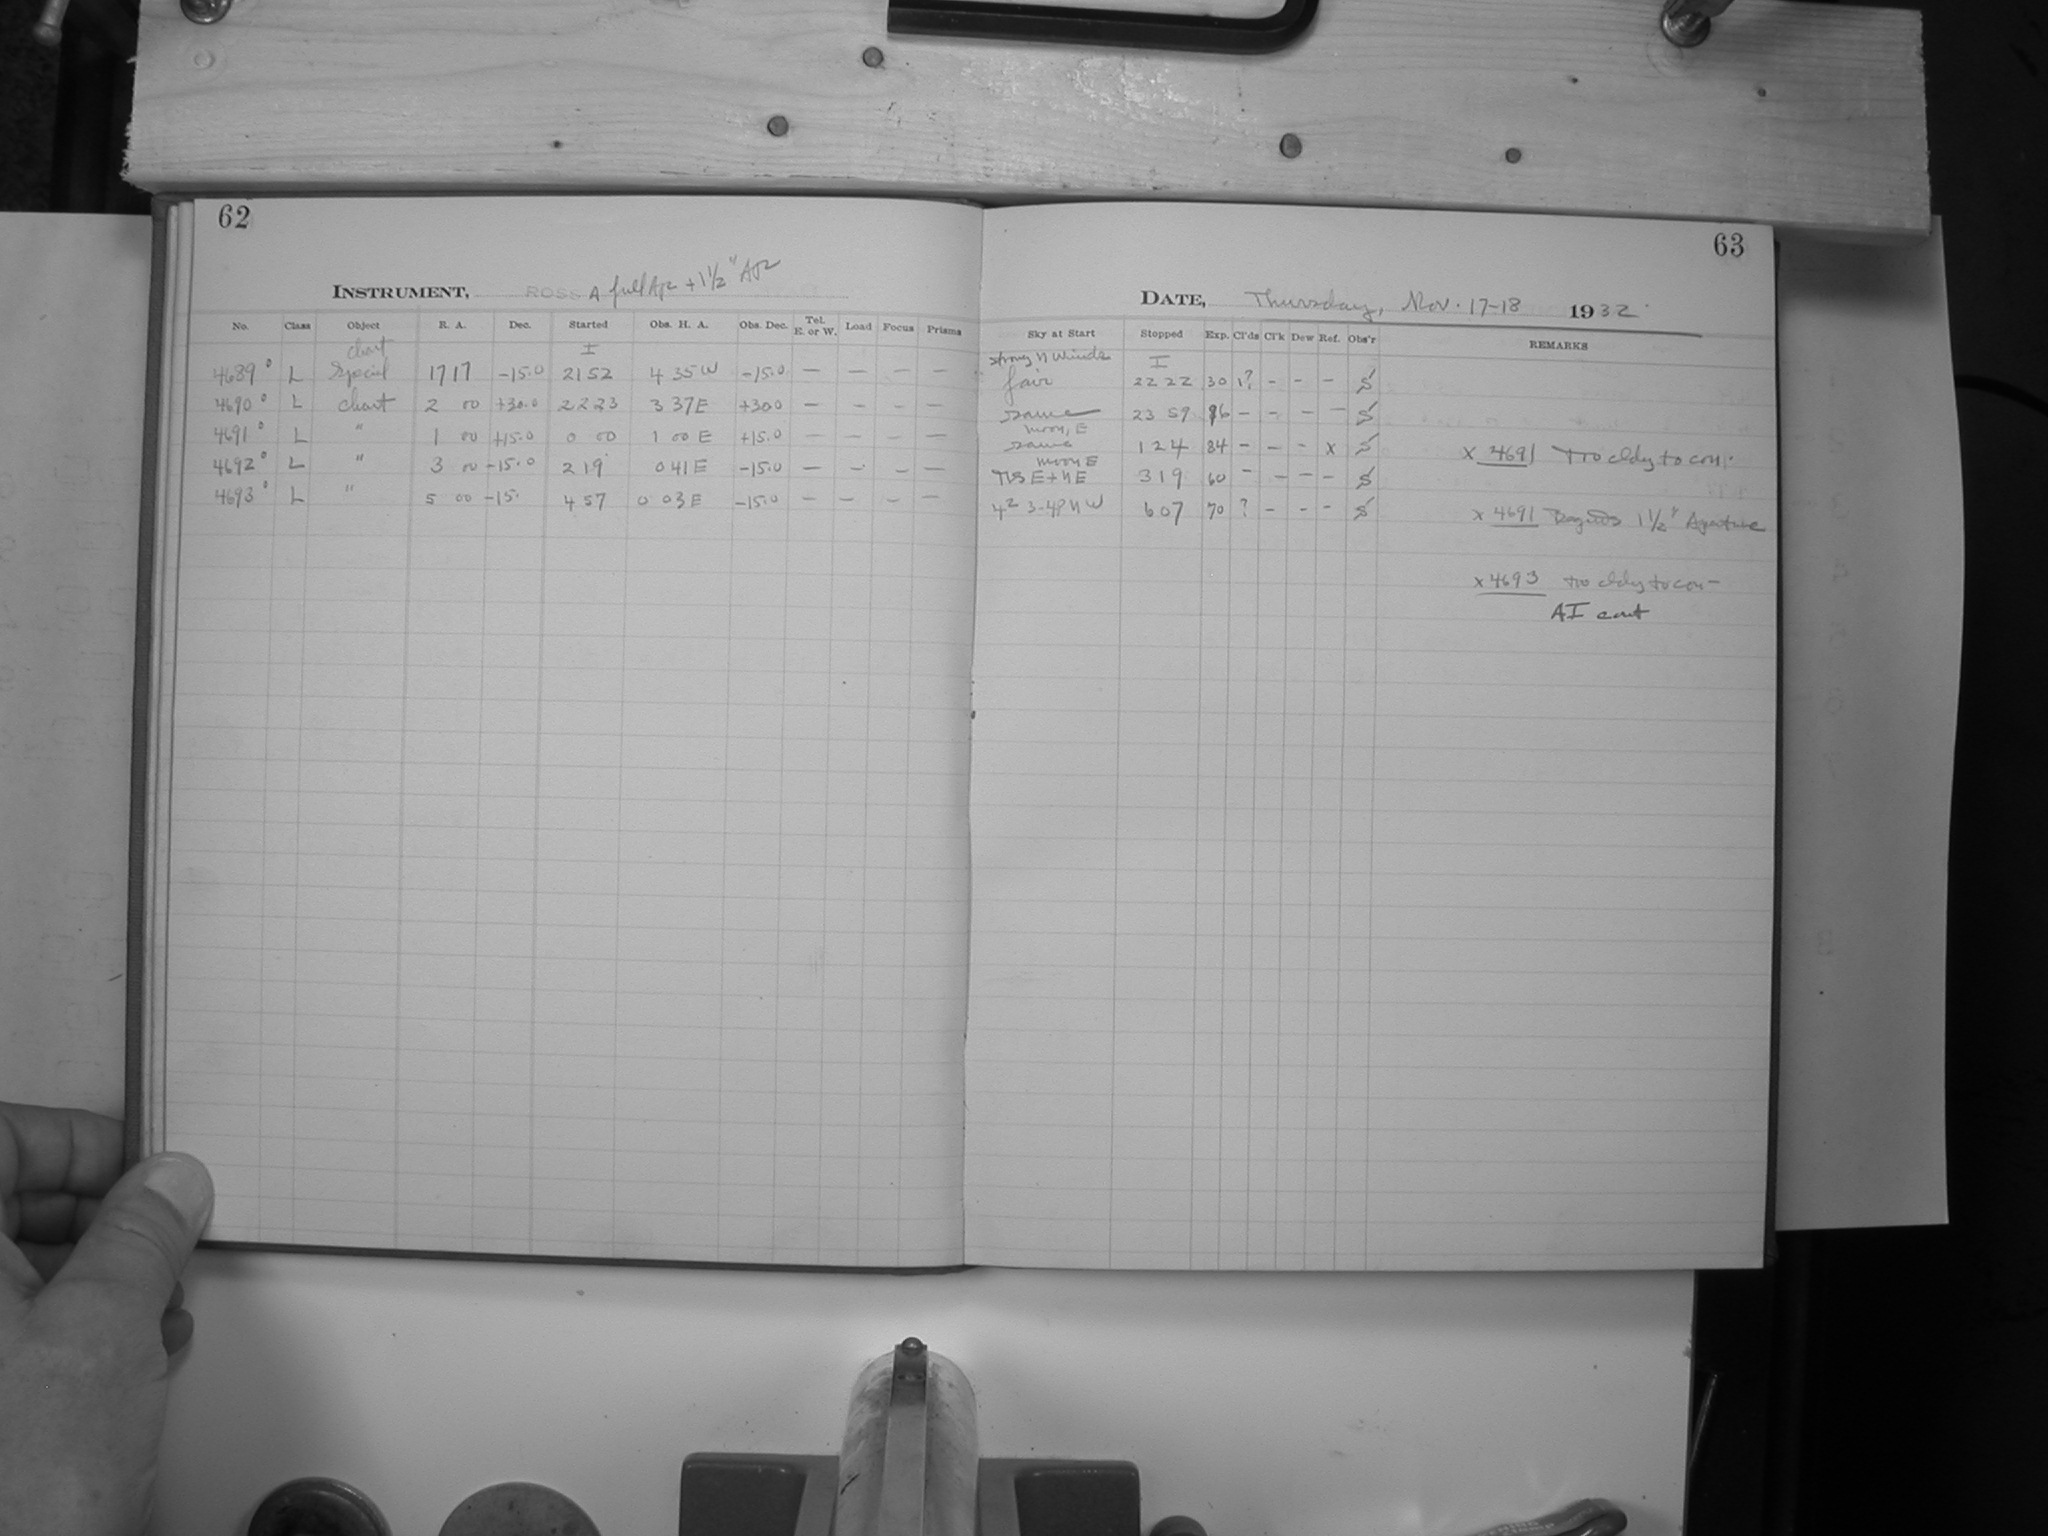 62
INSTRUMENT, ROSS A full Apr + 1 1/2" Apr
No. Class Object R. A. Dec. Started Obs. H. A. Obs. Dec. Tel. E. or W. Load Focus Prisms
chart I
4689 L Special 17 17 -15.0 21 52 4 35 W -15.0 — — — —
4690 L chart 2 00 +30.0 22 23 3 37 E +30.0 — — — —
4691 L " 1 00 +15.0 0 00 1 00 E +15.0 — — — —
4692 L " 3 00 -15.0 2 19 0 41 E -15.0 — — — —
4693 L " 5 00 -15. 4 57 0 03 E -15.0 — — — —
63
DATE, Thursday, Nov. 17-18 1932
Sky at Start Stopped Exp. Cl'ds Cl'k Dew Ref. Obs'r REMARKS
strong N Winds I
fair 22 22 30 1? - - - S
same 23 59 96 - - - - S
moon, E
same 1 24 84 - - - x S x 4691 Too cldy to con.
moon E
E + N E 3 19 60 - - - - S
3-4 N W 6 07 70 ? - - - S x 4691 1 1/2" Aperture
x 4693 too cldy to con-
AI cont